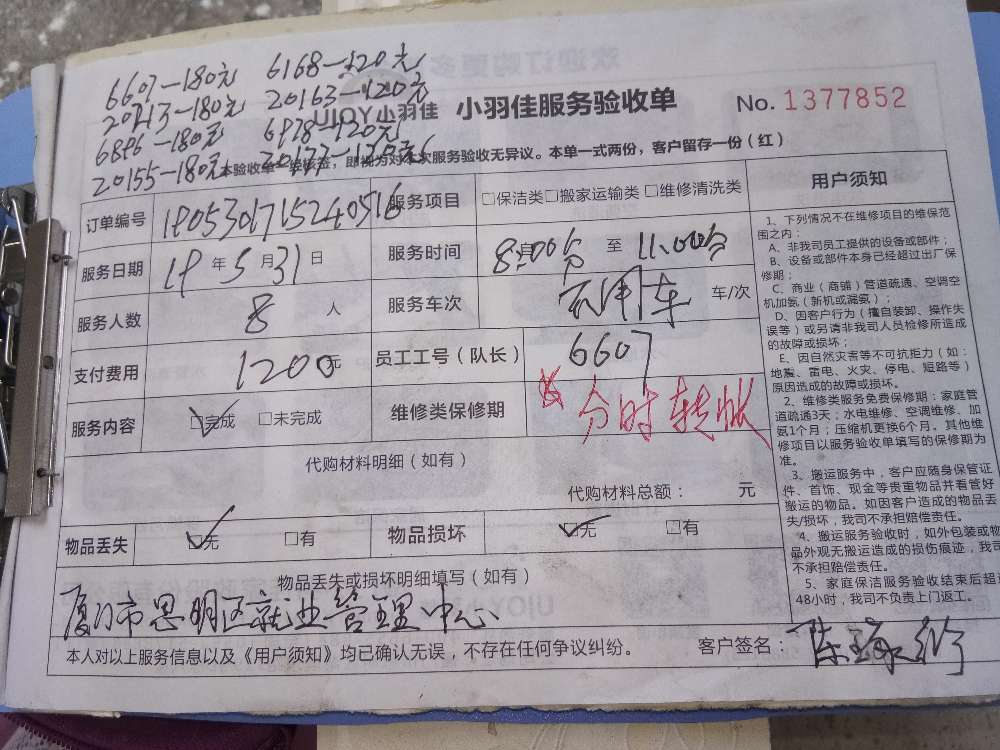 6607—180元 6168—120元
20213—180元 20163—120元
6896—180元 6978—120元
20155—180元 20177—120元
UJOY小羽佳 小羽佳服务验收单 No. 1377852
即视为对本次服务验收无异议。本单一式两份，客户留存一份（红）
订单编号 服务项目 □保洁类□搬家运输类 □维修清洗类
服务日期 19 年 5 月 31 日 服务时间 8:00分 至 11:00分
服务人数 8 人 服务车次 不用车 车/次
支付费用 1200元 员工工号（队长） 6607
服务内容 □完成 □未完成 维修类保修期 分时转帐
代购材料明细（如有）
代购材料总额： 元
物品丢失 □无 □有 物品损坏 □无 □有
物品丢失或损坏明细填写（如有）
厦门市思明区就业管理中心
本人对以上服务信息以及《用户须知》均已确认无误，不存在任何争议纠纷。 客户签名：
用户须知
1、下列情况不在维修项目的维保范
围之内：
A、非我司员工提供的设备或部件；
B、设备或部件本身已经超过出厂保
修期；
C、商业（商铺）管道疏通、空调空
机加氨（新机或漏氨）；
D、因客户行为（擅自装卸、操作失
误等）或另请非我司人员检修所造成
的故障或损坏；
E、因自然灾害等不可抗拒力（如：
地震、雷电、火灾、停电、短路等）
原因造成的故障或损坏。
2、维修类服务免费保修期：家庭管
道疏通3天；水电维修、空调维修、加
氨1个月；压缩机更换6个月。其他维
修项目以服务验收单填写的保修期为
准。
3、搬运服务中，客户应随身保管证
件、首饰、现金等贵重物品并看管好
搬运的物品。如因客户造成的物品丢
失/损坏，我司不承担赔偿责任。
4、搬运服务验收时，如外包装或物
品外观无搬运造成的损伤痕迹，我司
不承担赔偿责任。
5、家庭保洁服务验收结束后超过
48小时，我司不负责上门返工。